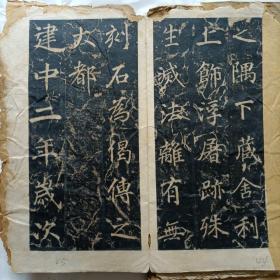 之隅下藏舍利
上飾浮屠跡殊
生滅法離有無
刻石為偈傳之
大都
建中二年歲次